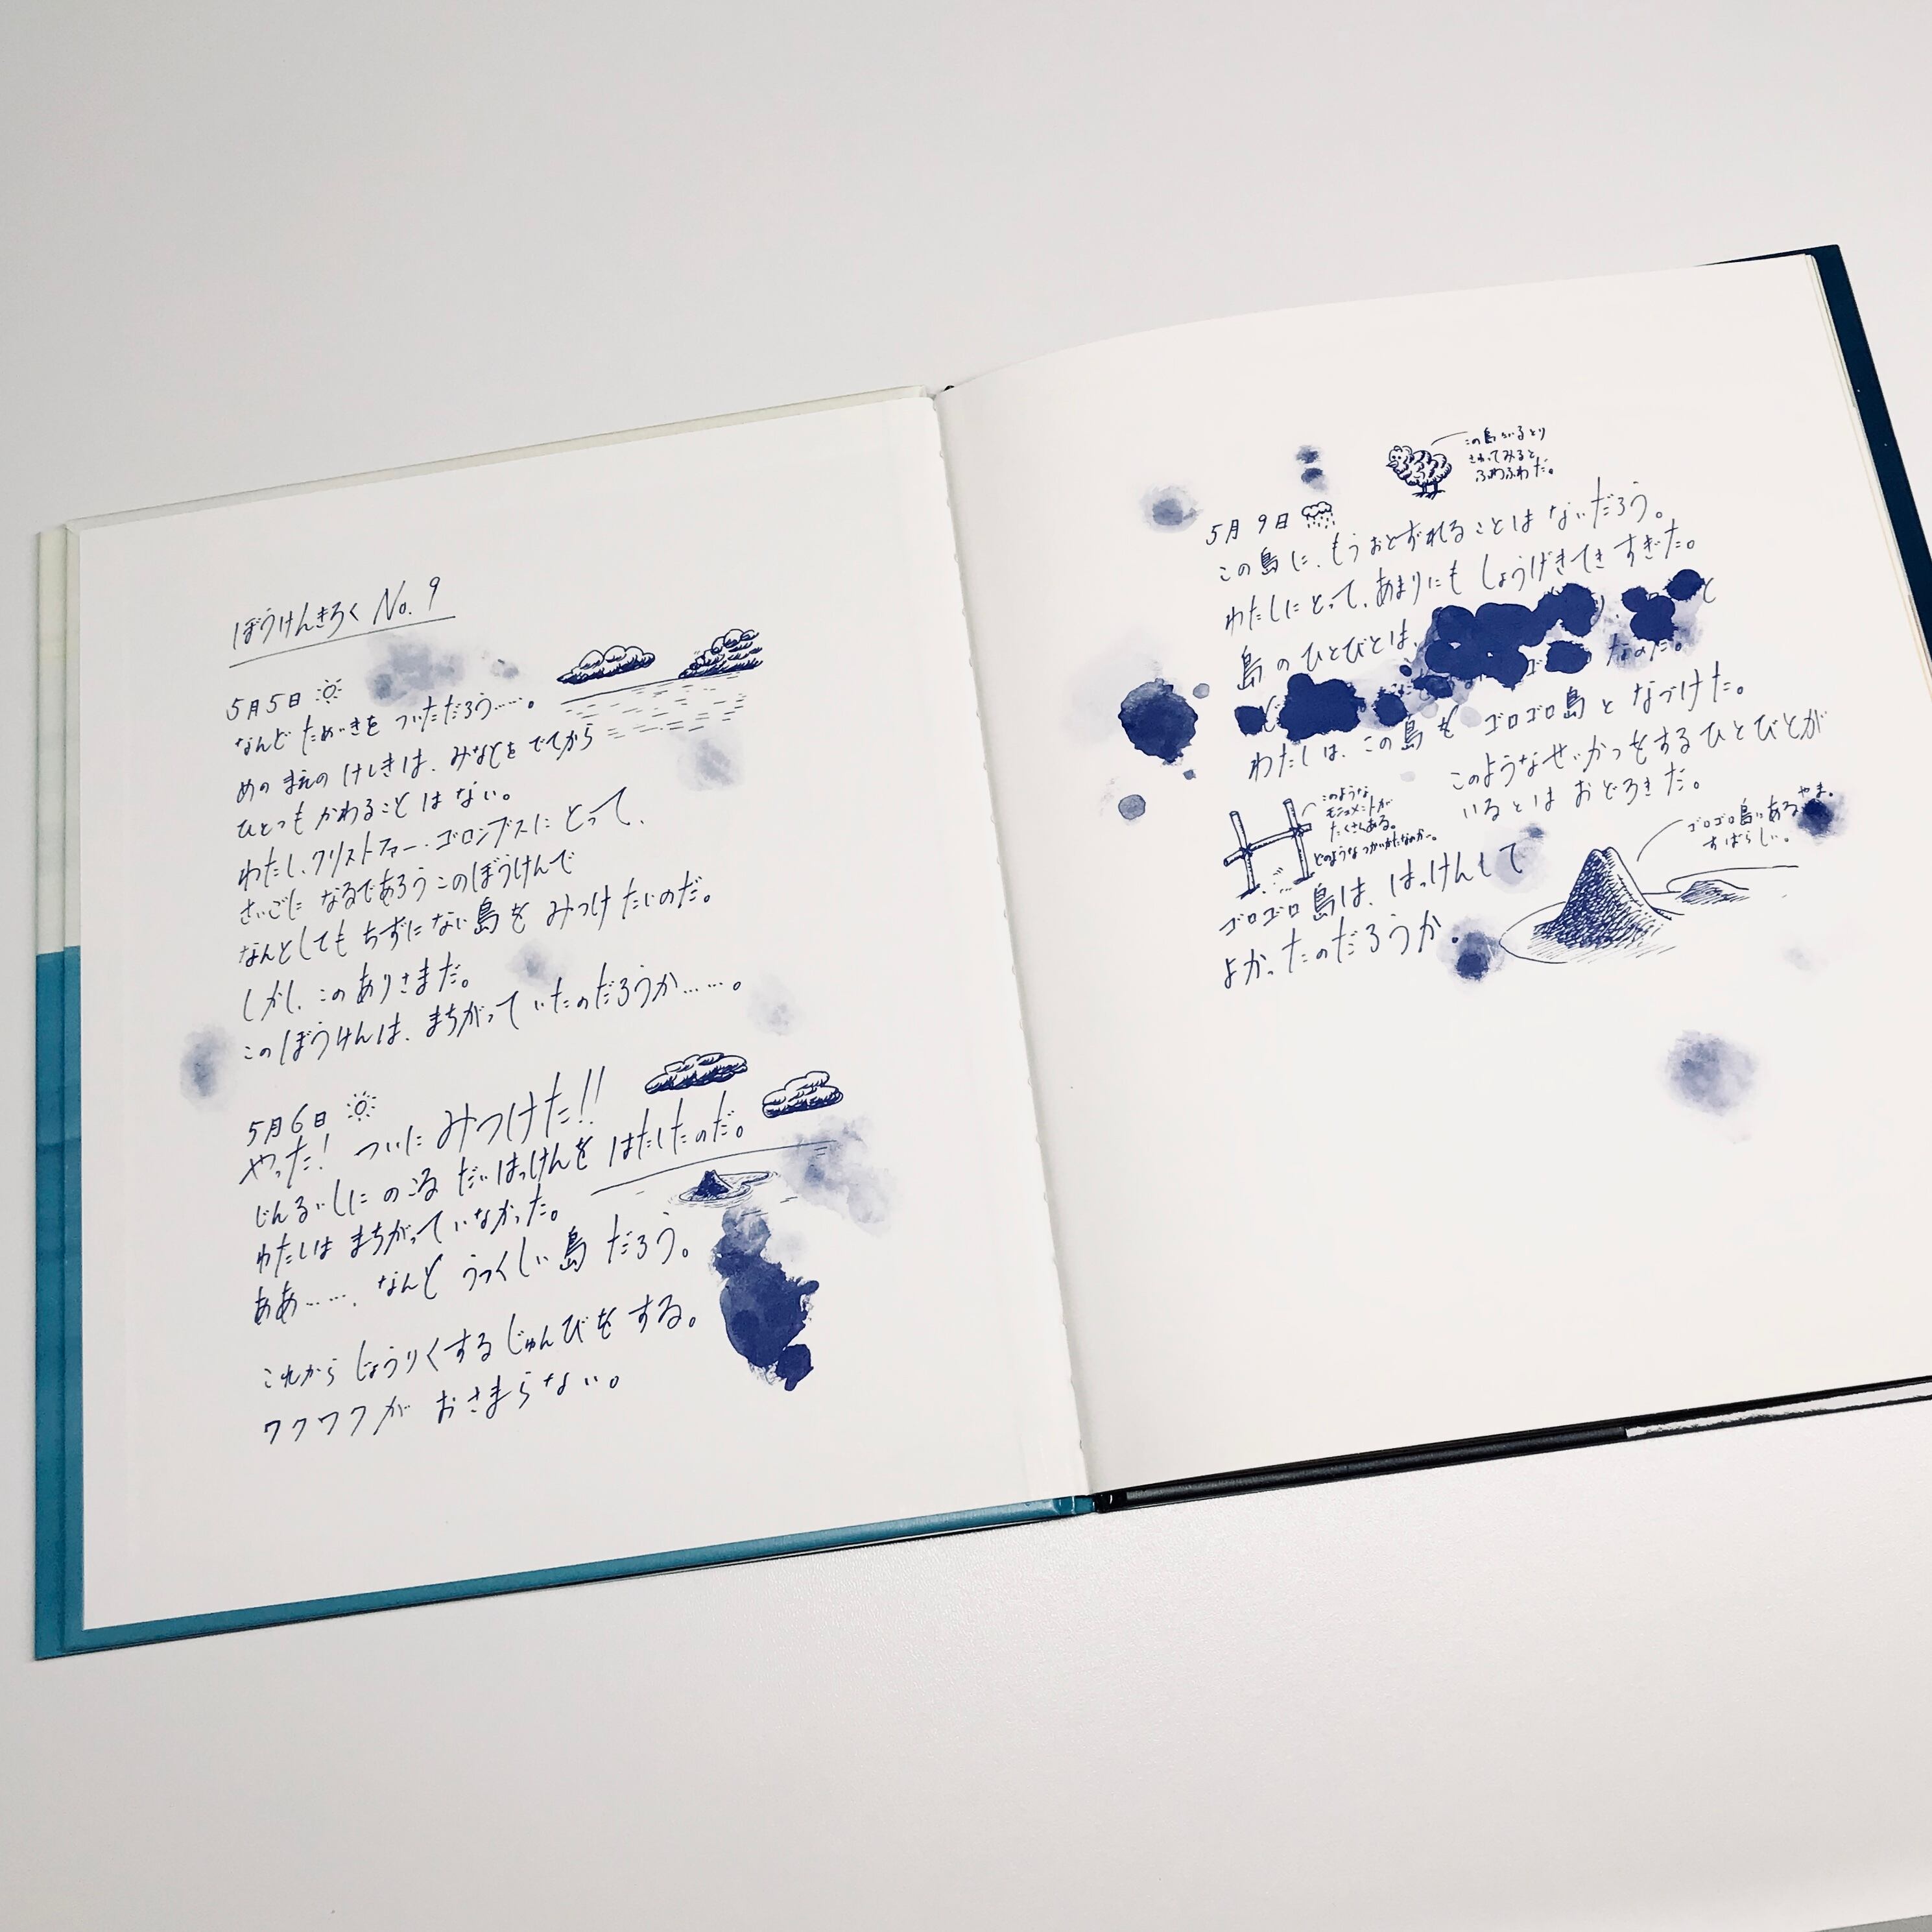 ぼうけんきろく No. 9
5月5日
なんど ためいきを ついただろう……。
めの まえの けしきは、みなとを でてから
ひとつも かわることは ない。
わたし、クリストファー・ゴロンブスに とって、
さいごに なるであろう このぼうけんで
なんとしても ちずに ない 島を みつけ たいのだ。
しかし、この ありさまだ。
このぼうけんは、まちがって いたのだろうか……。
5月6日
やった! ついに みつけた!!
じんるいしに のこる だいはっけんを はたしたのだ。
わたしは まちがって いなかった。
ああ……、なんと うつくしい 島 だろう。
これから じょうりくする じゅんびを する。
ワクワクが おさまらない。
この島にいるとり
さわってみると
ふわふわだ。
5月9日
この島に、もう おとずれる ことは ないだろう。
わたしにとって、あまりにも しょうげきてき すぎた。
島の ひとびとは、 と
なのだ。
わたしは、この島を ゴロゴロ島と なづけた。
このような せいかつをする ひとびとが
いるとは おどろきだ。
このような
モニュメントが
たくさんある。
どのような つかいかたなのか…。
ゴロゴロ島にある やま。
すばらしい。
ゴロゴロ島は、はっけんして
よかったのだろうか